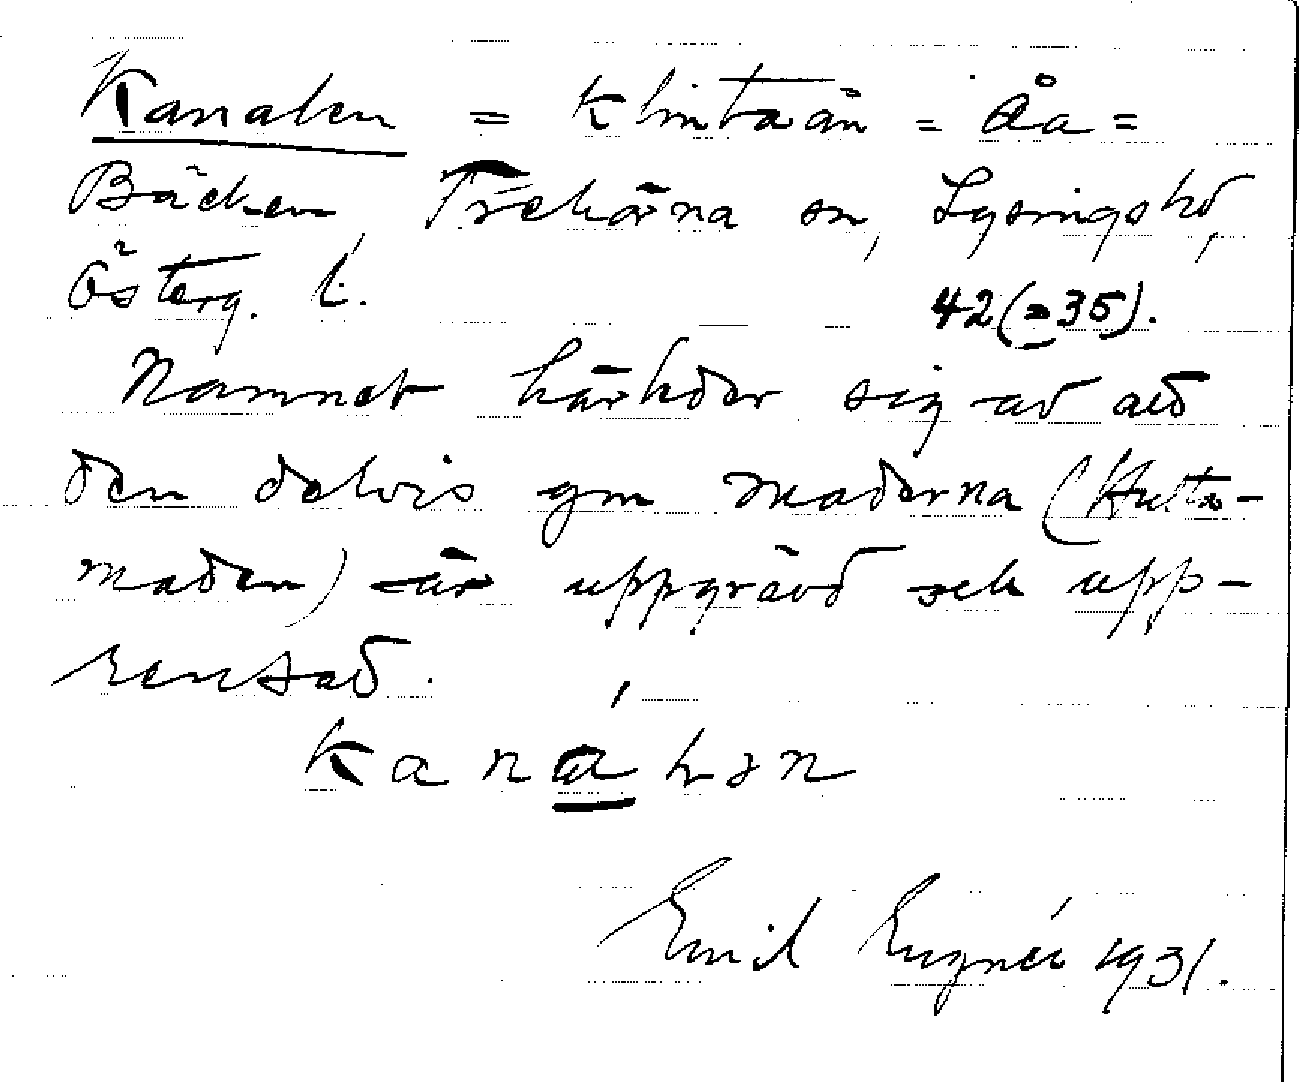 Kanalen = Klintaån = Åa =
Bäcken, Trehörna sn, Lysingshd,
Österg. l. 42(=35).
Namnet härleder sig av att
den delvis gm maderna (Hults-
maden) är uppgrävd och upp-
rensad.
kanálən
Emil 1931.